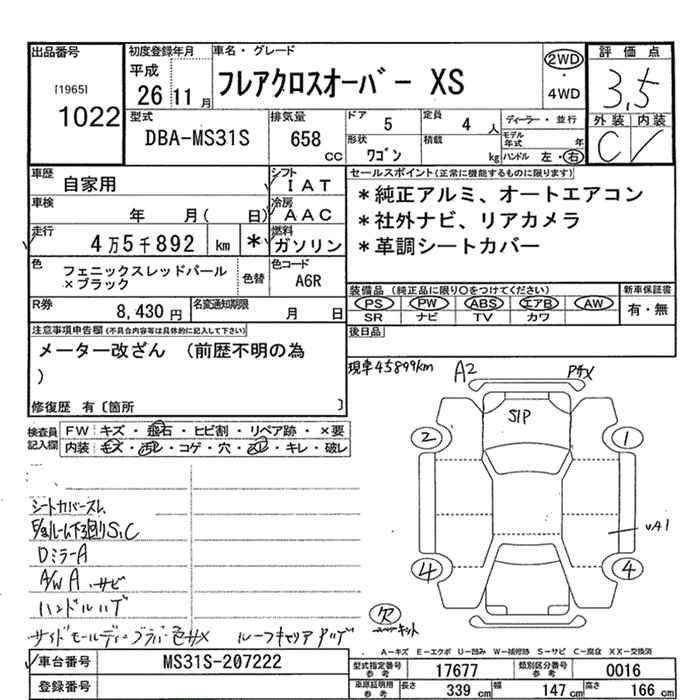 出品番号 初度登録年月 車名・グレード 評価点
[1965] 1022
平成 26 11月
フレアクロスオーバー XS
2WD ・ 4WD
3.5
外装 内装
C
型式 DBA-MS31S
排気量 658 cc
ドア 5 定員 4人
ディーラー・並行
形状 ワゴン 積載 kg
モデル年式 年
ハンドル 左・右
車歴 自家用
シフト IAT
車検 年 月( 日)
冷房 AAC
走行 4万5千892 km *
燃料 ガソリン
色 フェニックスレッドパール×ブラック
色替
色コード A6R
R券 8,430円
名変通知期限 月 日
セールスポイント(正常に機能するものに限ります)
*純正アルミ、オートエアコン
*社外ナビ、リアカメラ
*革調シートカバー
装備品 (純正品に限り○をつけてください) 新車保証書
PS PW ABS エアB AW
SR ナビ TV カワ
有・無
後日品
注意事項申告欄(不具合内容等は具体的に記入して下さい)
メーター改ざん (前歴不明の為
)
修復歴 有〔箇所 〕
現車45899km
A2
S1P
2 1
4 4
検査員記入欄
FW キズ・飛石・ヒビ割・リペア跡・×要
内装 キズ・汚レ・コゲ・穴・スレ・キレ・破レ
シートカバースレ
DミラーA
A/W A、サビ
欠
A-キズ E-エクボ U-凹み W-補修跡 S-サビ C-腐食 XX-交換済
車台番号 MS31S-207222
登録番号
型式指定番号 参考 17677
類別区分番号 参考 0016
車庫証明用 参考 長さ 339 cm 幅 147 cm 高さ 166 cm